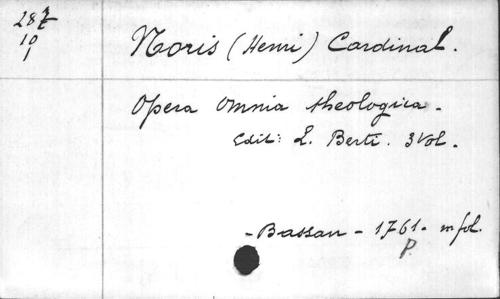 287
10
1
Noris (Henri) Cardinal.
Opera omnia theologica -
Edit: L. Berti. 3 Vol.
- Bassan - 1761. in fol.
p.